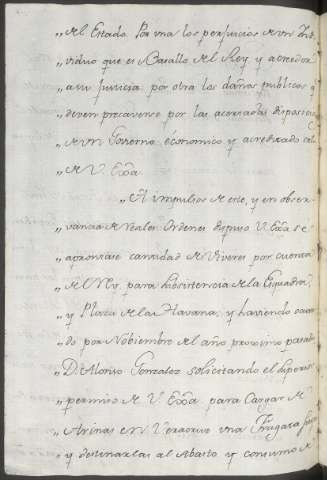 „ del Estado. Por una los perjuicios de un Indi-
„ viduo que es Vasallo del Rey, y acreedor
„ a su Justicia, por otra los daños publicos q
„ deven precaverse por las acertadas disposicio
„ de un Govierno económico y acreditado
„ de V. Exa.
„ A impulsos de este, y en obser-
„ vancia de Reales Ordenes dispuso V. Exa. se
„ aprontase cantidad de Viveres por cuenta
„ del Rey, para subsistencia de la Esquadra,
„ y Plaza de la Havana; y haviendo
„ do por Nobiembre del año proximo pasado
„ D. Alonso Gonzalez solicitando el Superior
„ permiso de V. Exa. para Cargar de
„ Arinas en Veracruz una Fragata
„ y destinarlas al Abasto y consumo de